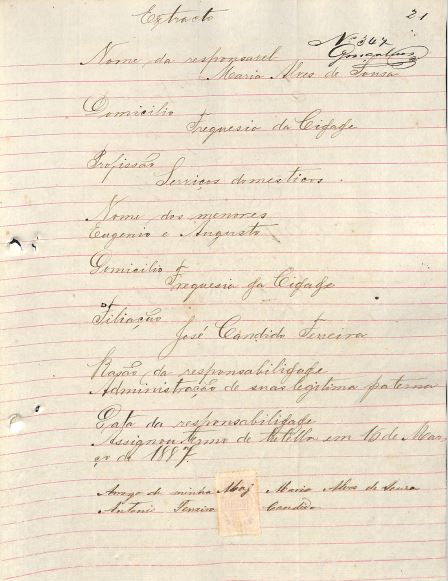 Extracto
21
Nº 347
Gonçalves
Nome da responsavel
Maria Alves de Sousa
Domicilio
Freguesia da Cidade
Profissão
Serviços domesticos.
Nome dos menores
Eugenio e Augusto
Domicilio
Freguesia da Cidade
Filiação
José Candido Ferreira
Rasão da responsabilidade
Administração de suas legitima paterna
Data da responsabilidade
Assignou termo de tutella em 16 de Mar
ço de 1887.
Arrogo de minha Maj Maria Alves de Sousa
Antonio Ferreira Candido